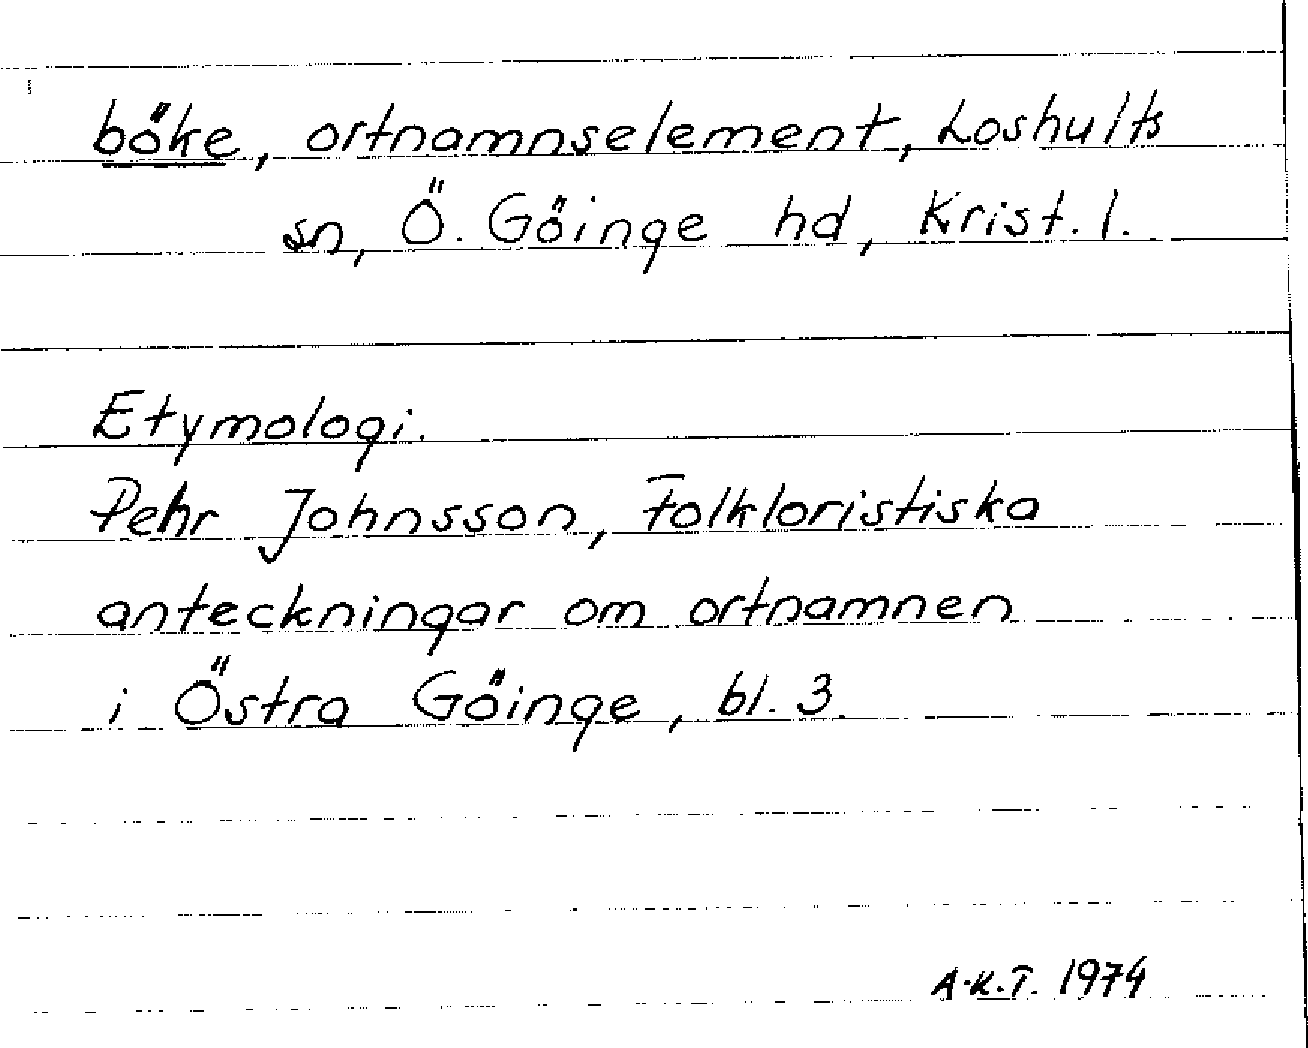 böke, ortnamnselement, Loshults
sn, Ö. Göinge hd, Krist. l.
Etymologi.
Pehr Johnsson, Folkloristiska
anteckningar om ortnamnen
i Östra Göinge, bl. 3.
A.K.T. 1974